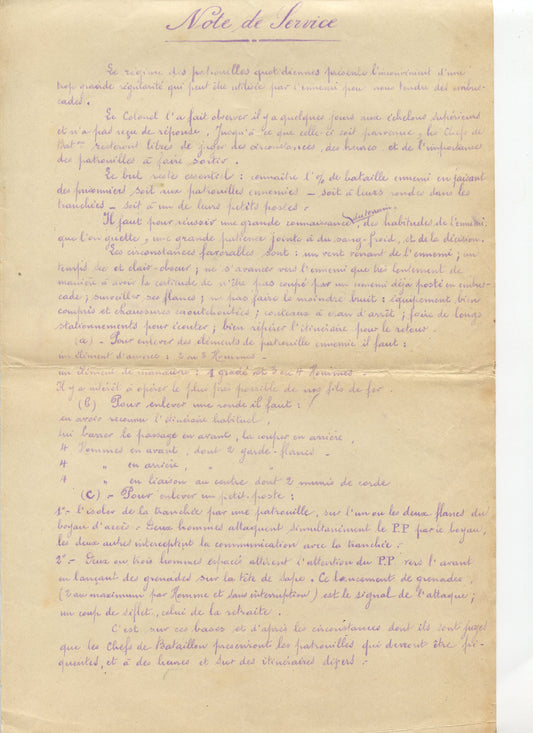 Note de Service
Le régime des patrouilles quotidiennes présente l'inconvénient d'une
trop grande régularité qui peut être utilisée par l'ennemi pour nous tendre des embus-
cades.
Le Colonel l'a fait observer il y a quelques jours aux échelons supérieurs
et n'a pas reçu de réponse. Jusqu'à ce que celle-ci soit parvenue, les Chefs de
Bat^on resteront libres de juger des circonstances, des heures et de l'importance
des patrouilles à faire sortir.
Le but reste essentiel : connaître l'O/ de bataille ennemi en faisant
des prisonniers soit aux patrouilles ennemies - soit à leurs rondes dans les
tranchées - soit à un de leurs petits postes -
Il faut pour réussir une grande connaissance du terrain, des habitudes de l'ennemi
que l'on guette, une grande patience jointe à du sang-froid, et de la décision.
Les circonstances favorables sont : un vent venant de l'ennemi ; un
temps sec et clair-obscur ; ne s'avancer vers l'ennemi que très lentement de
manière à avoir la certitude de n'être pas coupé par un ennemi déjà posté en embus-
cade ; surveiller ses flancs ; ne pas faire le moindre bruit : équipement bien
compris et chaussures caoutchoutées ; couteaux à cran d'arrêt ; faire de longs
stationnements pour écouter ; bien repérer l'itinéraire pour le retour -
(a) - Pour enlever des éléments de patrouille ennemie il faut :
un élément d'amorce : 2 ou 3 Hommes -
un élément de manœuvre : 1 gradé et 3 ou 4 Hommes -
Il y a intérêt à opérer le plus près possible de nos fils de fer.
(b) Pour enlever une ronde il faut :
en avoir reconnu l'itinéraire habituel,
lui barrer le passage en avant, la couper en arrière,
4 Hommes en avant, dont 2 garde-flancs -
4 " en arrière, " "
4 " en liaison au centre dont 2 munis de corde
(c) - Pour enlever un petit-poste :
1° - l'isoler de la tranchée par une patrouille, sur l'un ou les deux flancs du
boyau d'accès - Deux hommes attaquent simultanément le P.P par le boyau,
les deux autres interceptent la communication avec la tranchée -
2° - Deux ou trois hommes espacés attirent l'attention du P.P. vers l'avant
en lançant des grenades sur la tête de sape. Ce lancement de grenades,
(2 au maximum par Homme et sans interruption) est le signal de l'attaque ;
un coup de sifflet, celui de la retraite.
C'est sur ces bases et d'après les circonstances dont ils sont juges
que les Chefs de Bataillon prescriront les patrouilles qui devront être fré-
quentes, et à des heures et sur des itinéraires divers -